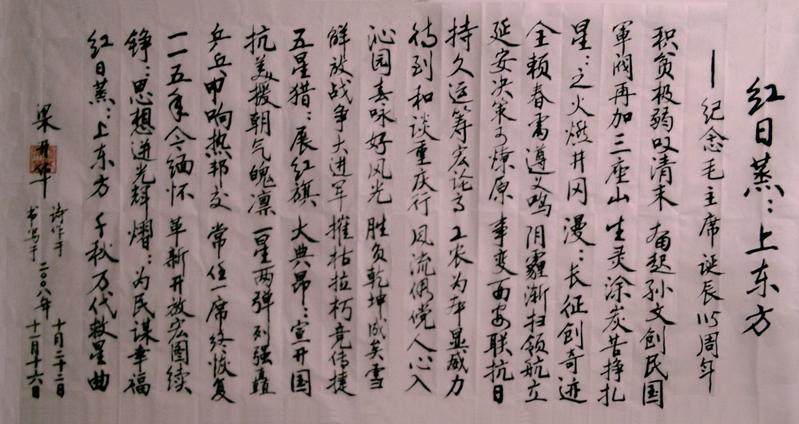 红日蒸:上东方
—纪念毛主席诞辰115周年
积贫极弱叹清末 奋起孙文创民国
軍阀再加三座山 生灵涂炭苦挣扎
星:之火燃井冈 漫:长征创奇迹
全赖春雷遵义鸣 阴霾渐扫领航立
延安决策可燎原 事变西安联抗日
持久运筹宏论高 工农为本显威力
待到和谈重庆行 风流倜傥人心入
沁园春咏好风光 胜负乾坤成矣雪
解放战争大进军 摧枯拉朽竞传捷
五星猎:展红旗 大典昂:宣开国
抗美援朝气魄凛 一星两弹列强矗
乒乓申响热邦交 常任一席终恢复
一一五年今缅怀 革新开放宏图续
铮:思想迸光辉 熠:为民谋幸福
红日蒸:上东方 千秋万代救星曲
诗作于 二〇〇八年 十月二十二日
书写于 十一月十六日
梁